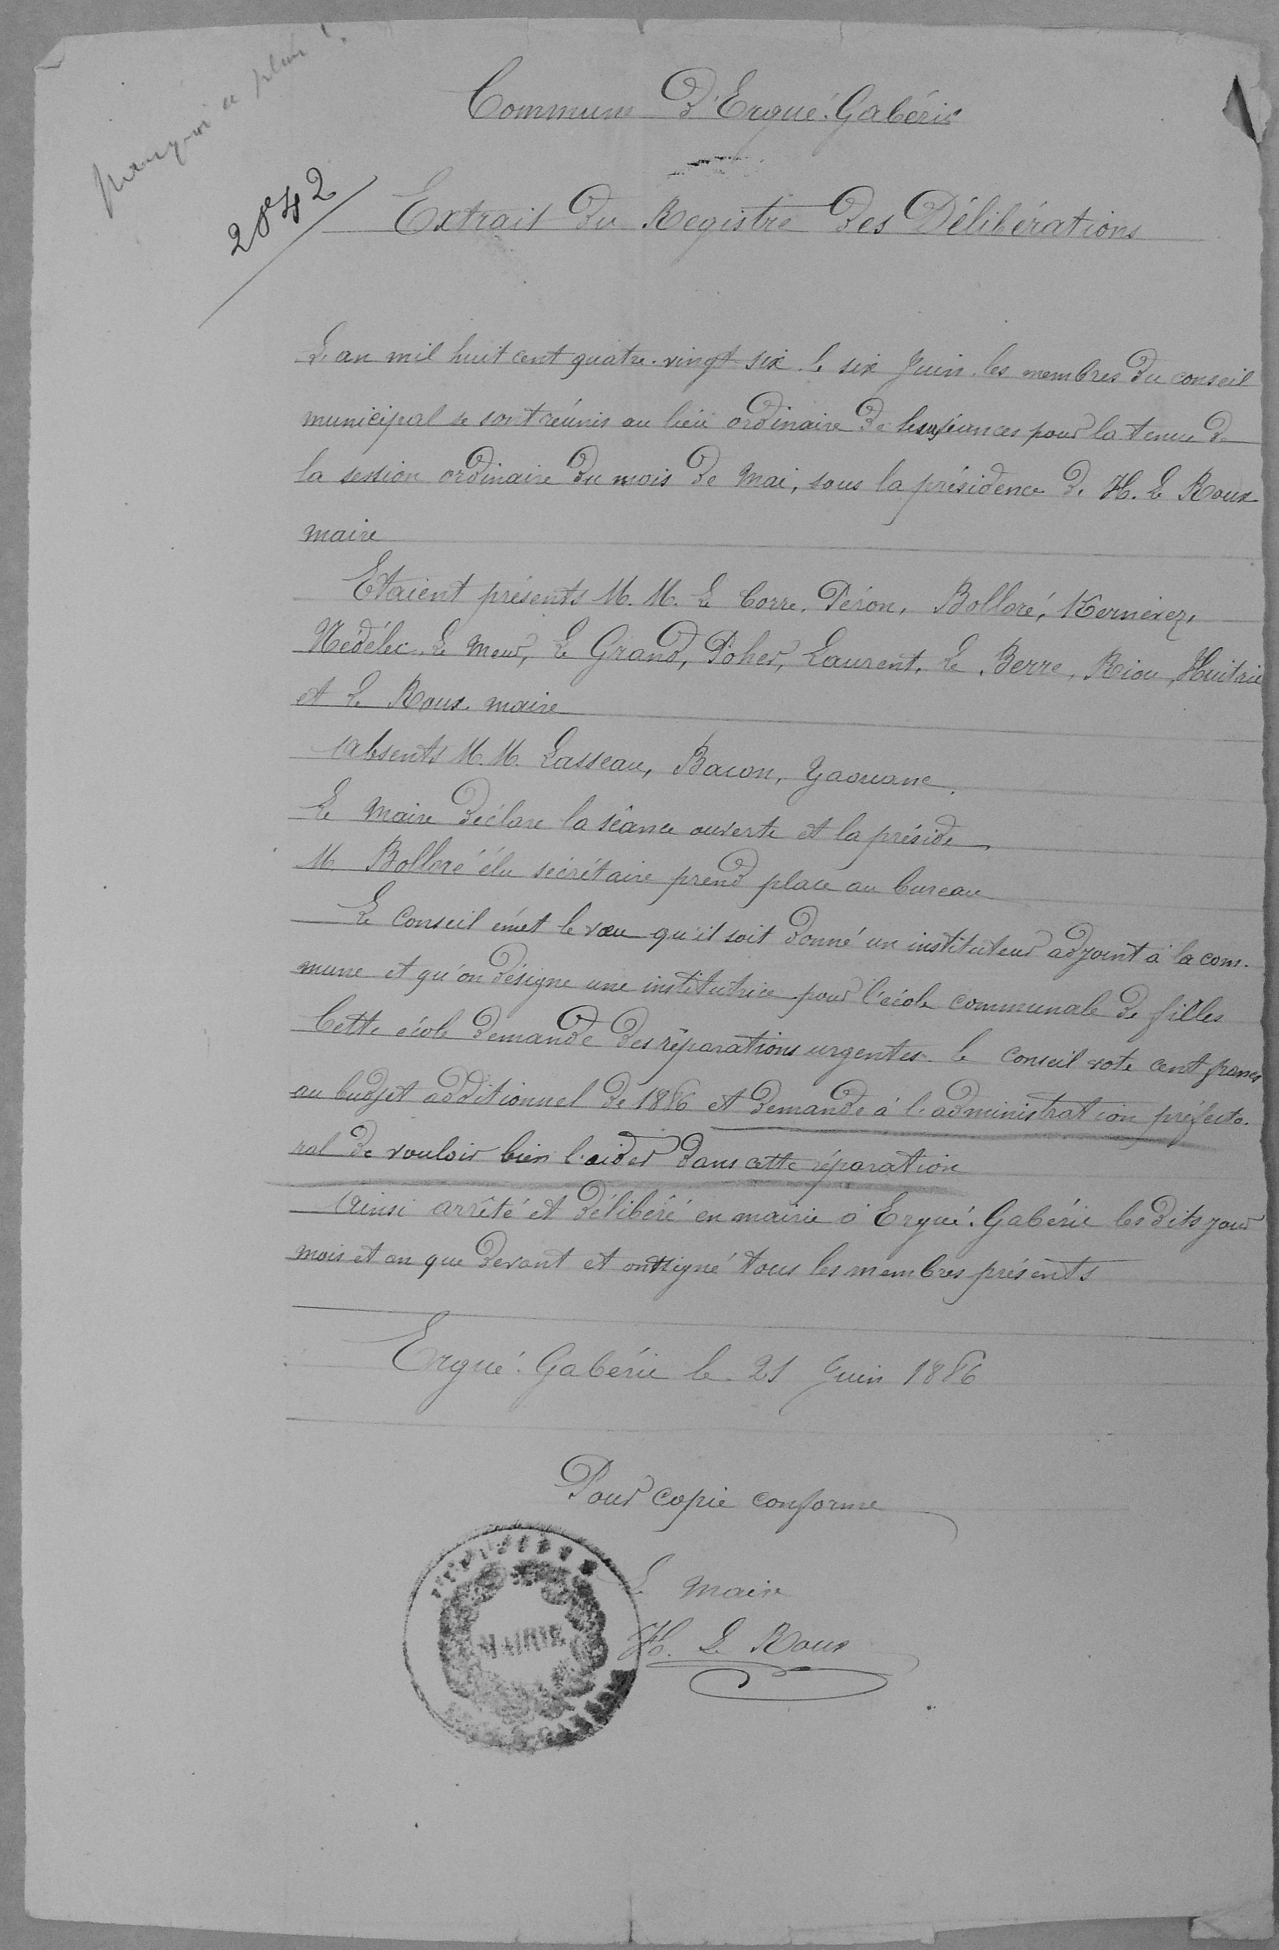 Commune d'Ergué-Gabéric
2842
Extrait du Registre des Délibérations
L'an mil huit cent quatre-vingt six le six Juin les membres du conseil
municipal se sont réunis au lieu ordinaire de leurs séances pour la tenue de
la session ordinaire du mois de Mai, sous la présidence de H. Le Roux
maire
Etaient présents M. M. Le Corre, Péron, Bolloré, Kernévez,
Nédélec, Le Meur, Le Grand, Poher, Laurent, Le Berre, Riou, Huitric
et Le Roux maire
Absents M. M. Lasseau, Bacon, Yaouanc.
Le Maire déclare la séance ouverte et la préside
M Bolloré élu sécrétaire prend place au bureau
Le Conseil émet le vœu qu'il soit donné un instituteur adjoint à la com-
mune et qu'on désigne une institutrice pour l'école communale de filles
Cette école demande des réparations urgentes le Conseil vote cent francs
au budget additionnel de 1886 et demande à l'administration préfecto-
ral de vouloir bien l'aider dans cette réparation
Ainsi arrêté et délibéré en mairie à Ergué-Gabéric les dits jour
mois et an que devant et ont signé tous les membres présents
Ergué-Gabéric le 21 Juin 1886
Pour copie conforme
Le Maire
H. Le Roux
MAIRIE